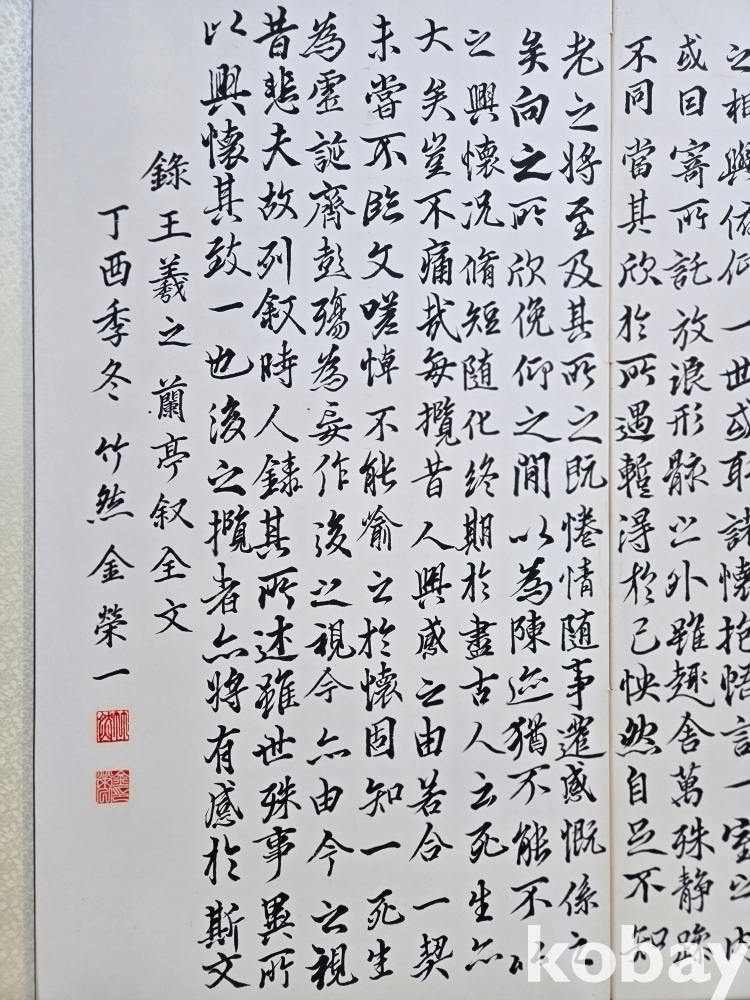 之相與俯仰一世或取諸懷抱悟言一室之內
或因寄所託放浪形骸之外雖趣舍萬殊靜躁
不同當其欣於所遇暫得於己怏然自足不知
老之將至及其所之既惓情隨事遷感慨係之
矣向之所欣俛仰之間以為陳迹猶不能不以
之興懷況脩短隨化終期於盡古人云死生亦
大矣豈不痛哉每攬昔人興感之由若合一契
未嘗不臨文嗟悼不能喻之於懷固知一死生
為虛誕齊彭殤為妄作後之視今亦由今之視
昔悲夫故列敘時人錄其所述雖世殊事異所
以興懷其致一也後之攬者亦將有感於斯文
錄王羲之蘭亭敘全文
丁酉季冬竹然金榮一
kobay